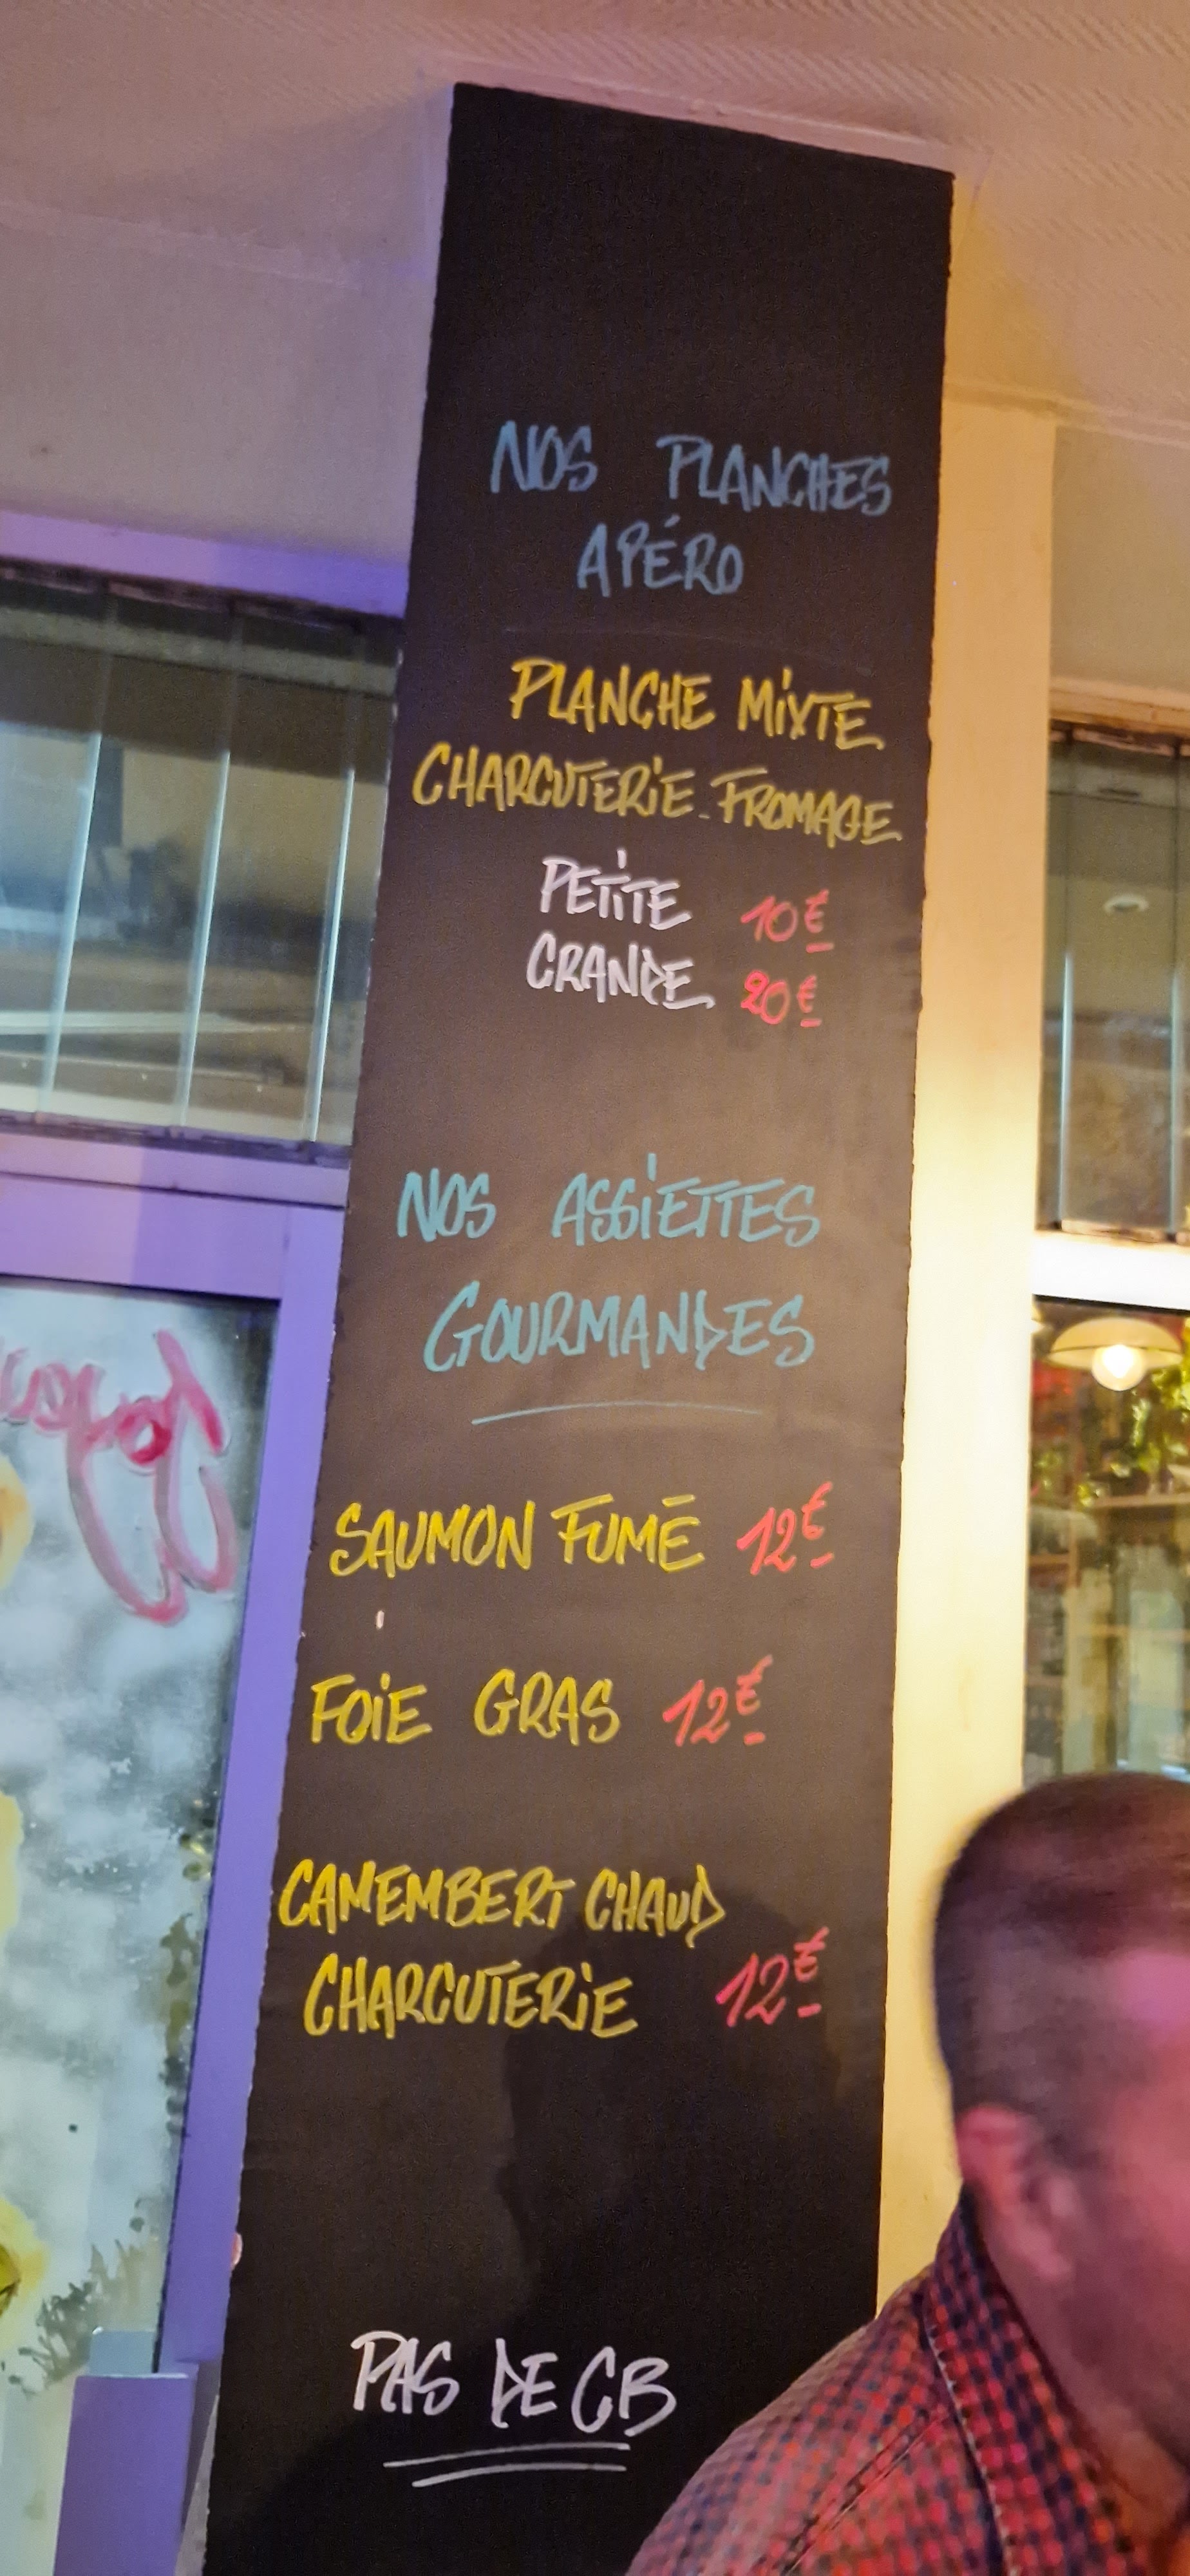 NOS PLANCHES
APÉRO
PLANCHE MIXTE
CHARCUTERIE-FROMAGE
PETITE 10€
GRANDE 20€
NOS ASSIETTES
GOURMANDES
SAUMON FUMÉ 12€
FOIE GRAS 12€
CAMEMBERT CHAUD
CHARCUTERIE 12€
PAS DE CB